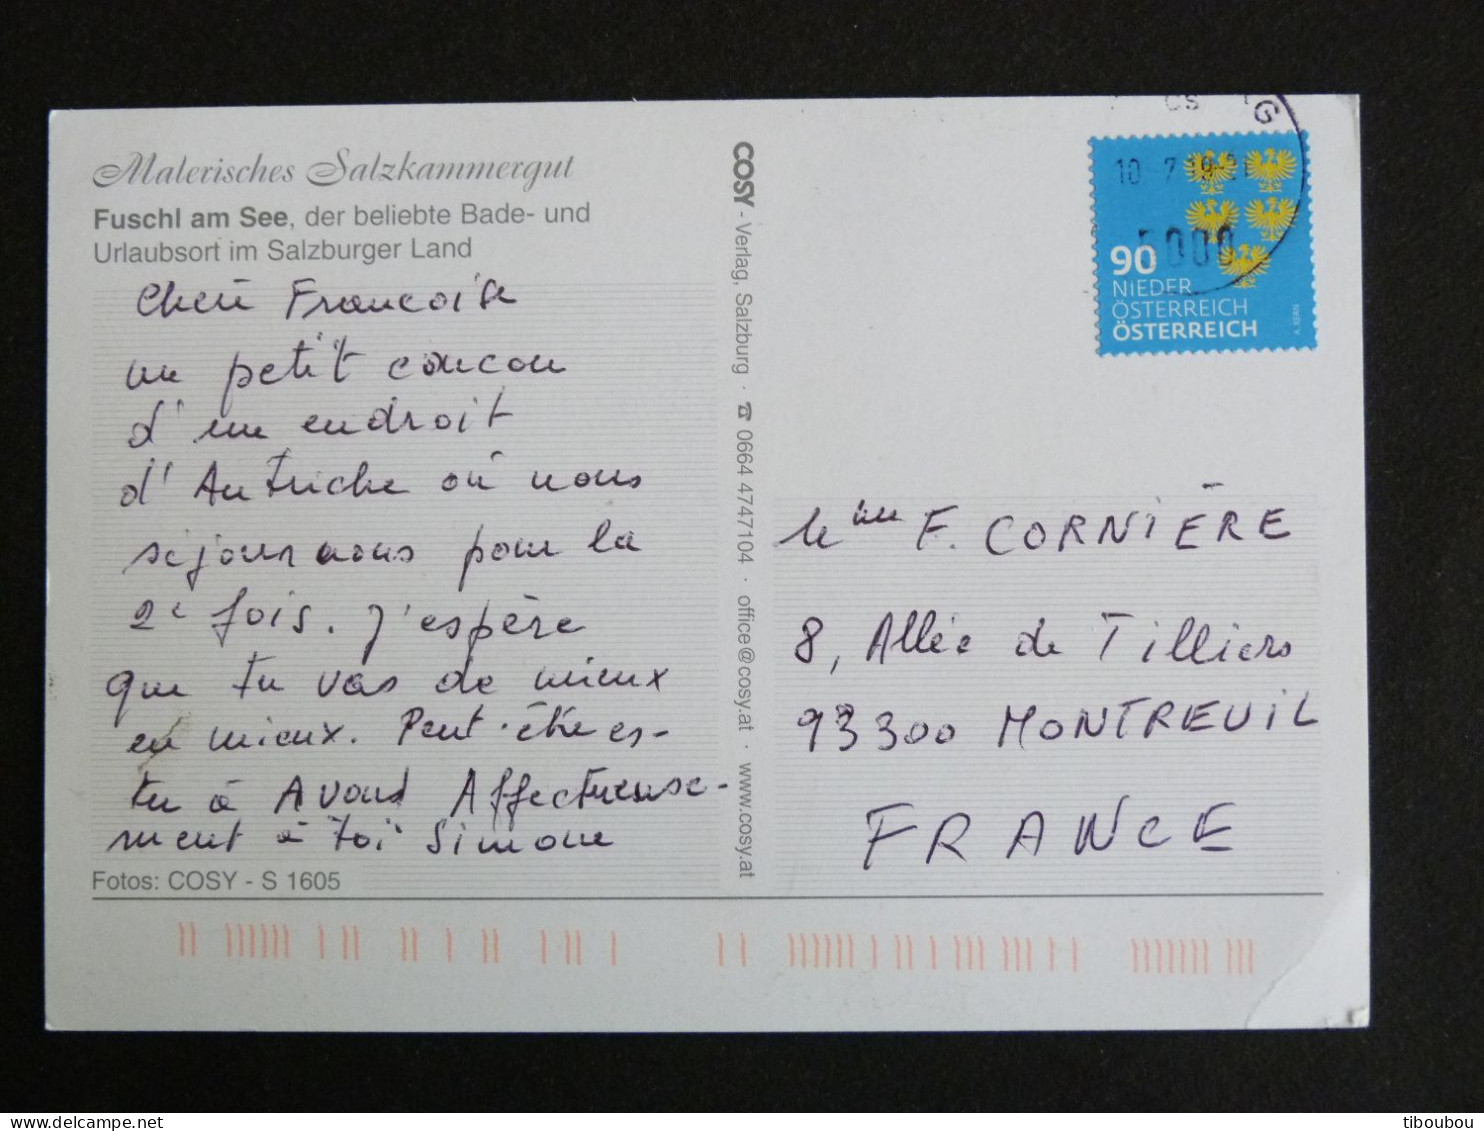 Malerisches Salzkammergut
Fuschl am See, der beliebte Bade- und
Urlaubsort im Salzburger Land
Chère Francoise
un petit coucou
d'un endroit
d'Autriche où nous
séjournons pour la
2e fois. J'espère
que tu vas de mieux
en mieux. Peut-être es-
tu à Avoud Affectueuse-
ment à toi Simone
Fotos: COSY - S 1605
COSY - Verlag, Salzburg · ☎ 0664 4747104 · office@cosy.at · www.cosy.at
G
10 7 19
5000
90
NIEDER
ÖSTERREICH
ÖSTERREICH
A. KERN
Mme F. CORNIÈRE
8, Allée de Tilliers
93300 MONTREUIL
FRANCE
delcampe.net
tiboubou